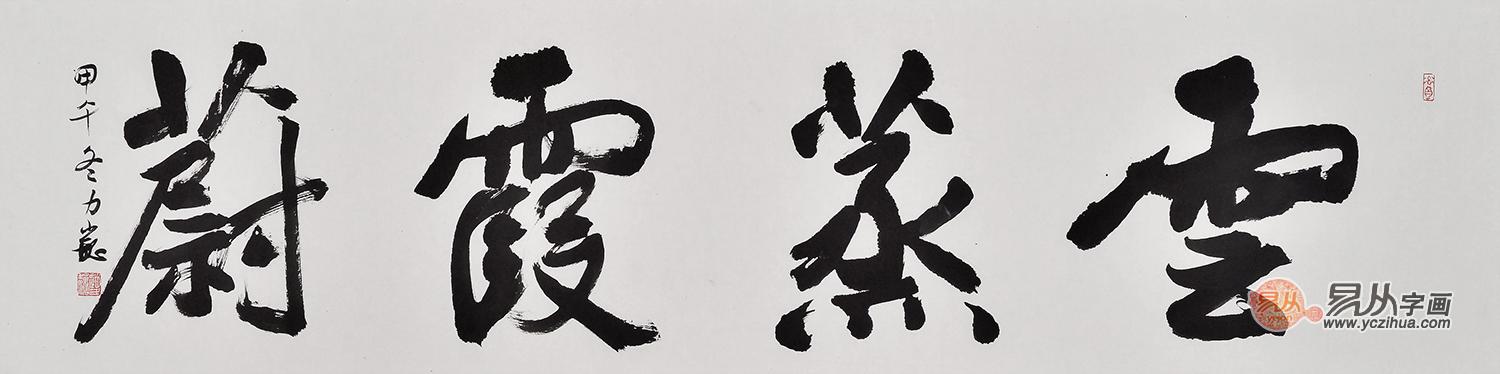 雲蒸霞蔚
甲午冬力
易从
易从字画
www.yczihua.com